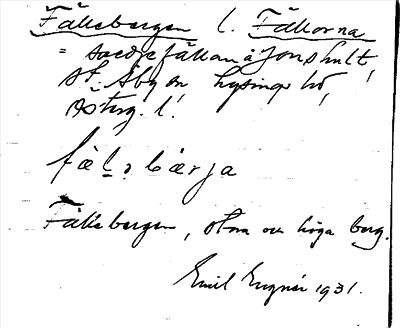 Fällebergen l. Fällorna
= Svedjefällan å Jonshult,
St. Åby sn Lysings hd,
Österg. l.
fæləbærja
Fällebergen, stora och höga berg.
Emil Engnér 1931.